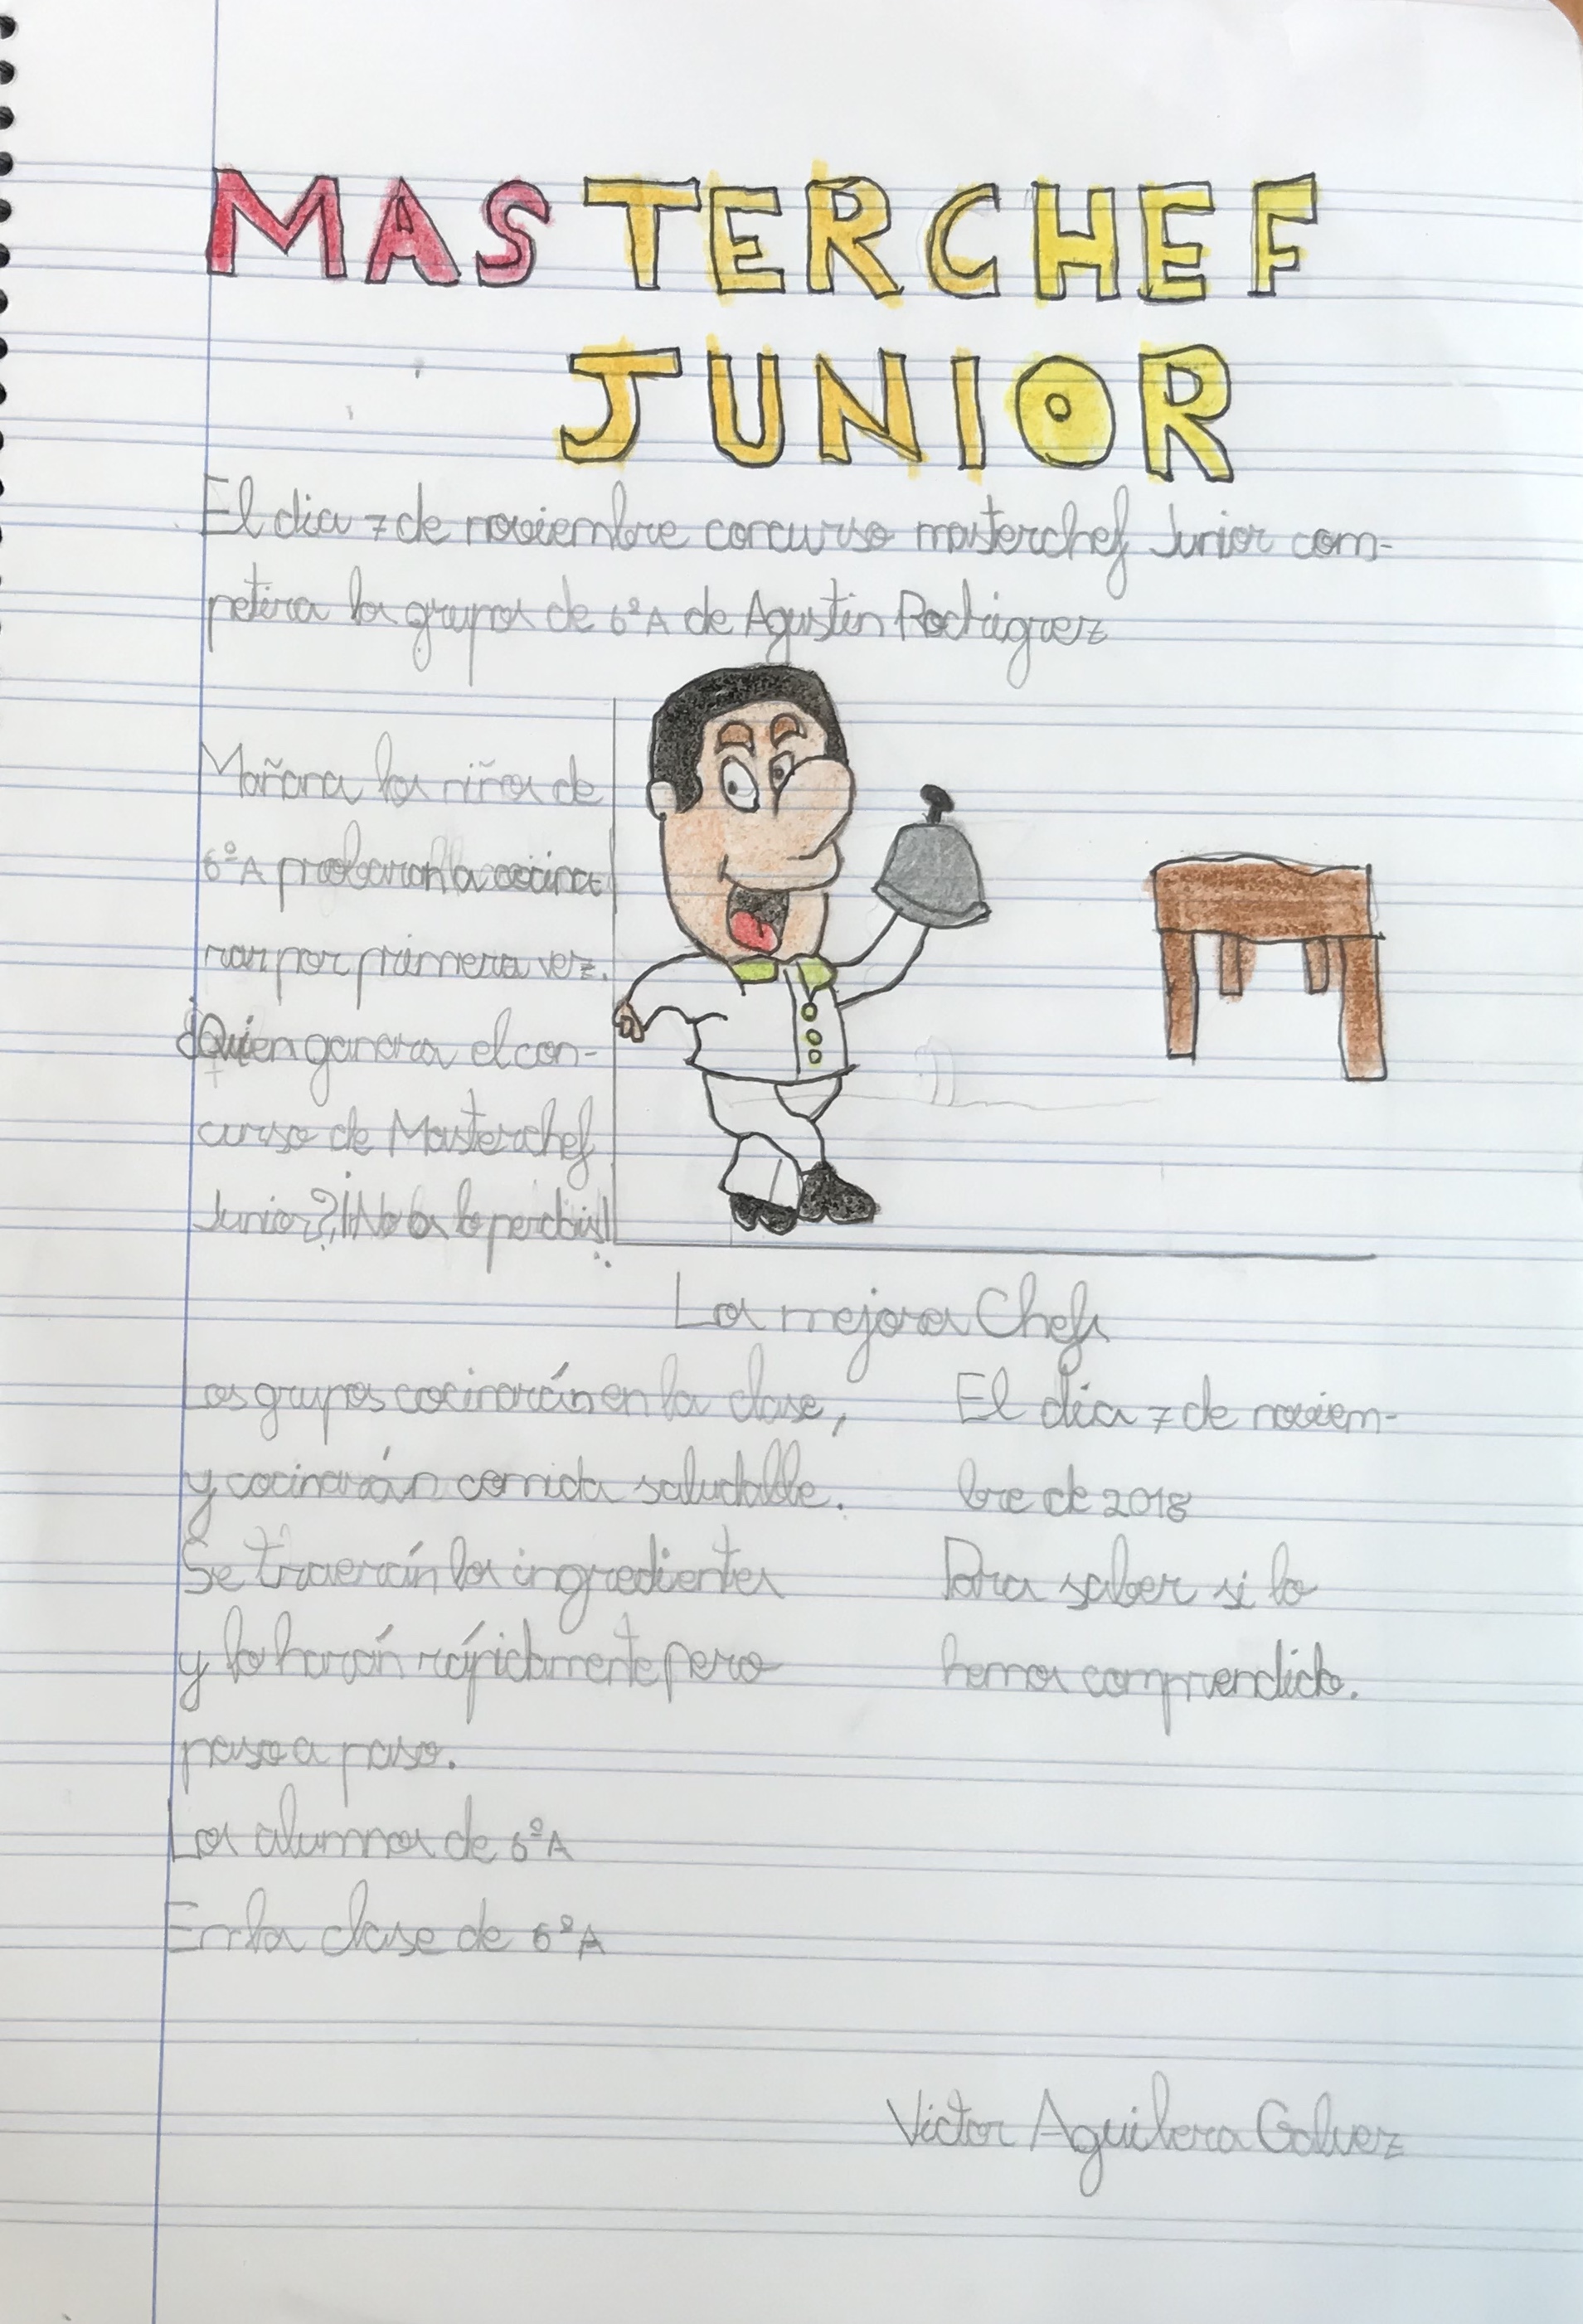 MASTERCHEF
JUNIOR
El dia 7 de noviembre concurso masterchef Junior com-
petira los grupos de 6ºA de Agustin Rodriguez
Mañana los niños de
6ºA probaran a cocina
rar por primera vez.
¿Quien ganara el con-
curso de Masterchef
Junior? ¡¡No os lo perdais!!
Los mejores Chefs
Los grupos cocinarán en la clase,
y cocinarán comida saludable.
Se traerán los ingredientes
y lo harán rápidamente pero
paso a paso.
Los alumnos de 6ºA
En la clase de 6ºA
El dia 7 de noviem-
bre de 2018
Para saber si lo
hemos comprendido.
Victor Aguilera Galvez